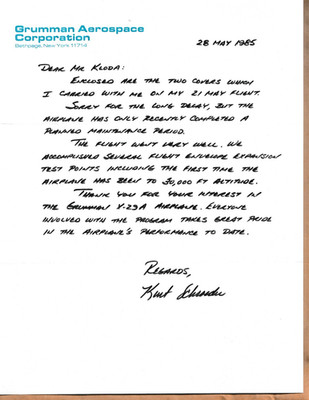 Grumman Aerospace
Corporation
Bethpage, New York 11714
28 MAY 1985
DEAR MR KLODA:
ENCLOSED ARE THE TWO COVERS WHICH
I CARRIED WITH ME ON MY 21 MAY FLIGHT.
SORRY FOR THE LONG DELAY, BUT THE
AIRPLANE HAS ONLY RECENTLY COMPLETED A
PLANNED MAINTENANCE PERIOD.
THE FLIGHT WENT VERY WELL. WE
ACCOMPLISHED SEVERAL FLIGHT ENVELOPE EXPANSION
TEST POINTS INCLUDING THE FIRST TIME THE
AIRPLANE HAS BEEN TO 30,000 FT ALTITUDE.
THANK YOU FOR YOUR INTEREST IN
THE GRUMMAN X-29A AIRPLANE. EVERYONE
INVOLVED WITH THE PROGRAM TAKES GREAT PRIDE
IN THE AIRPLANE'S PERFORMANCE TO DATE.
REGARDS,
Kurt Schroeder